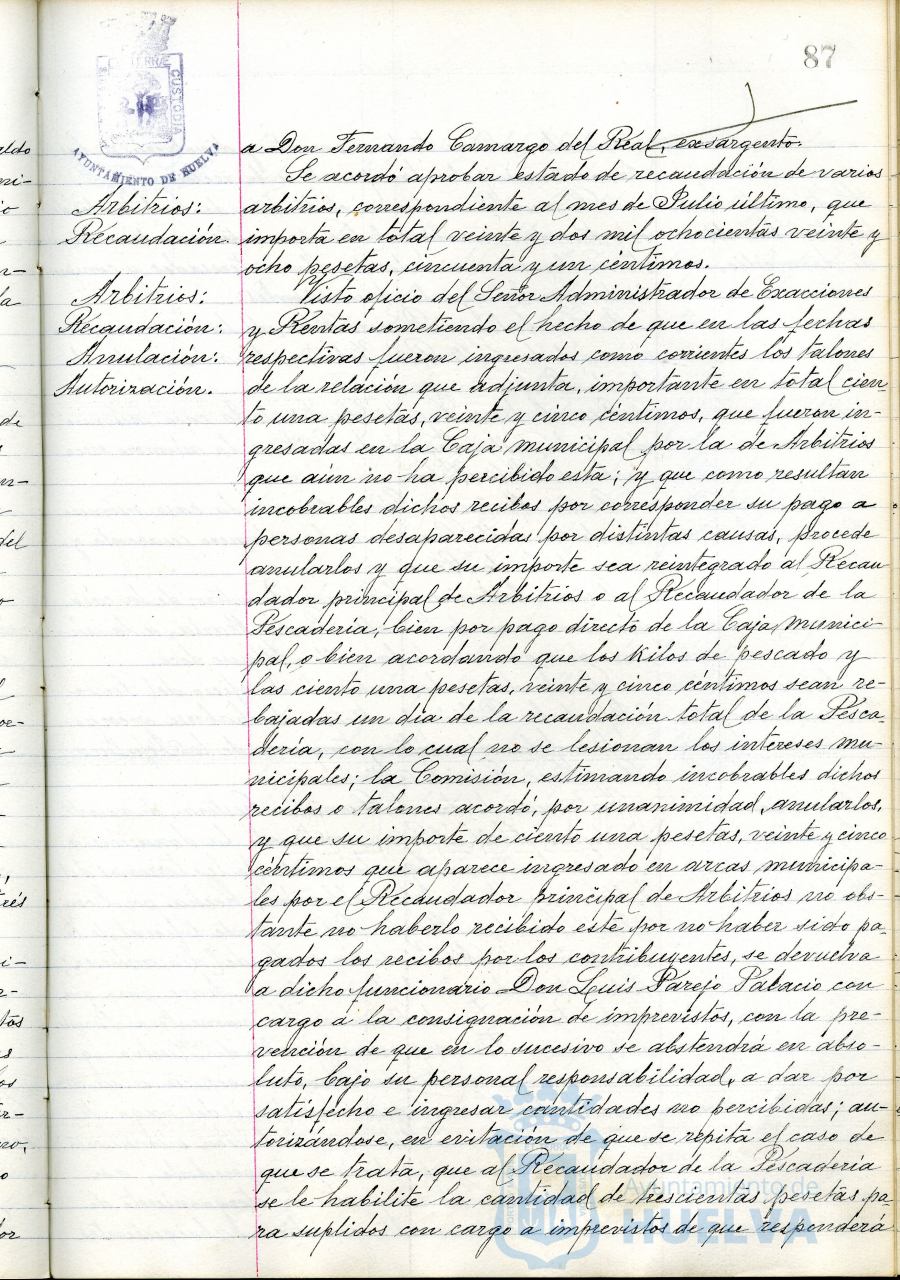 87
PORTUS MARIS ET TERRÆ CUSTODIA
AYUNTAMIENTO DE HUELVA
a Don Fernando Camargo del Real, exsargento.
Se acordó aprobar estado de recaudación de varios
Arbitrios:
arbitrios, correspondiente al mes de Julio último, que
Recaudación.
importa en total veinte y dos mil ochocientas veinte y
ocho pesetas, cincuenta y un céntimos.
Arbitrios:
Visto oficio del Señor Administrador de Exacciones
Recaudación:
y Rentas sometiendo el hecho de que en las fechas
Anulación:
respectivas fueron ingresados como corrientes los talones
Autorización.
de la relación que adjunta, importante en total cien-
to una pesetas, veinte y cinco céntimos, que fueron in-
gresadas en la Caja municipal por la de Arbitrios
que aún no ha percibido esta; y que como resultan
incobrables dichos recibos por corresponder su pago a
personas desaparecidas por distintas causas, procede
anularlos y que su importe sea reintegrado al Recau
dador principal de Arbitrios o al Recaudador de la
Pescadería, bien por pago directo de la Caja munici-
pal, o bien acordando que los kilos de pescado y
las ciento una pesetas, veinte y cinco céntimos sean re-
bajadas un día de la recaudación total de la Pesca-
dería, con lo cual no se lesionan los intereses mu-
nicipales; la Comisión, estimando incobrables dichos
recibos o talones acordó, por unanimidad, anularlos,
y que su importe de ciento una pesetas, veinte y cinco
céntimos que aparece ingresado en arcas municipa-
les por el Recaudador principal de Arbitrios no obs-
tante no haberlo recibido este por no haber sido pa-
gados los recibos por los contribuyentes, se devuelva
a dicho funcionario Don Luis Parejo Palacio con
cargo a la consignación de imprevistos, con la pre-
vención de que en lo sucesivo se abstendrá en abso-
luto, bajo su personal responsabilidad, a dar por
satisfecho e ingresar cantidades no percibidas; au-
torizándose, en evitación de que se repita el caso de
que se trata, que al Recaudador de la Pescadería
se le habilite la cantidad de trescientas pesetas pa-
ra suplidos con cargo a imprevistos de que responderá
Ayuntamiento de
HUELVA